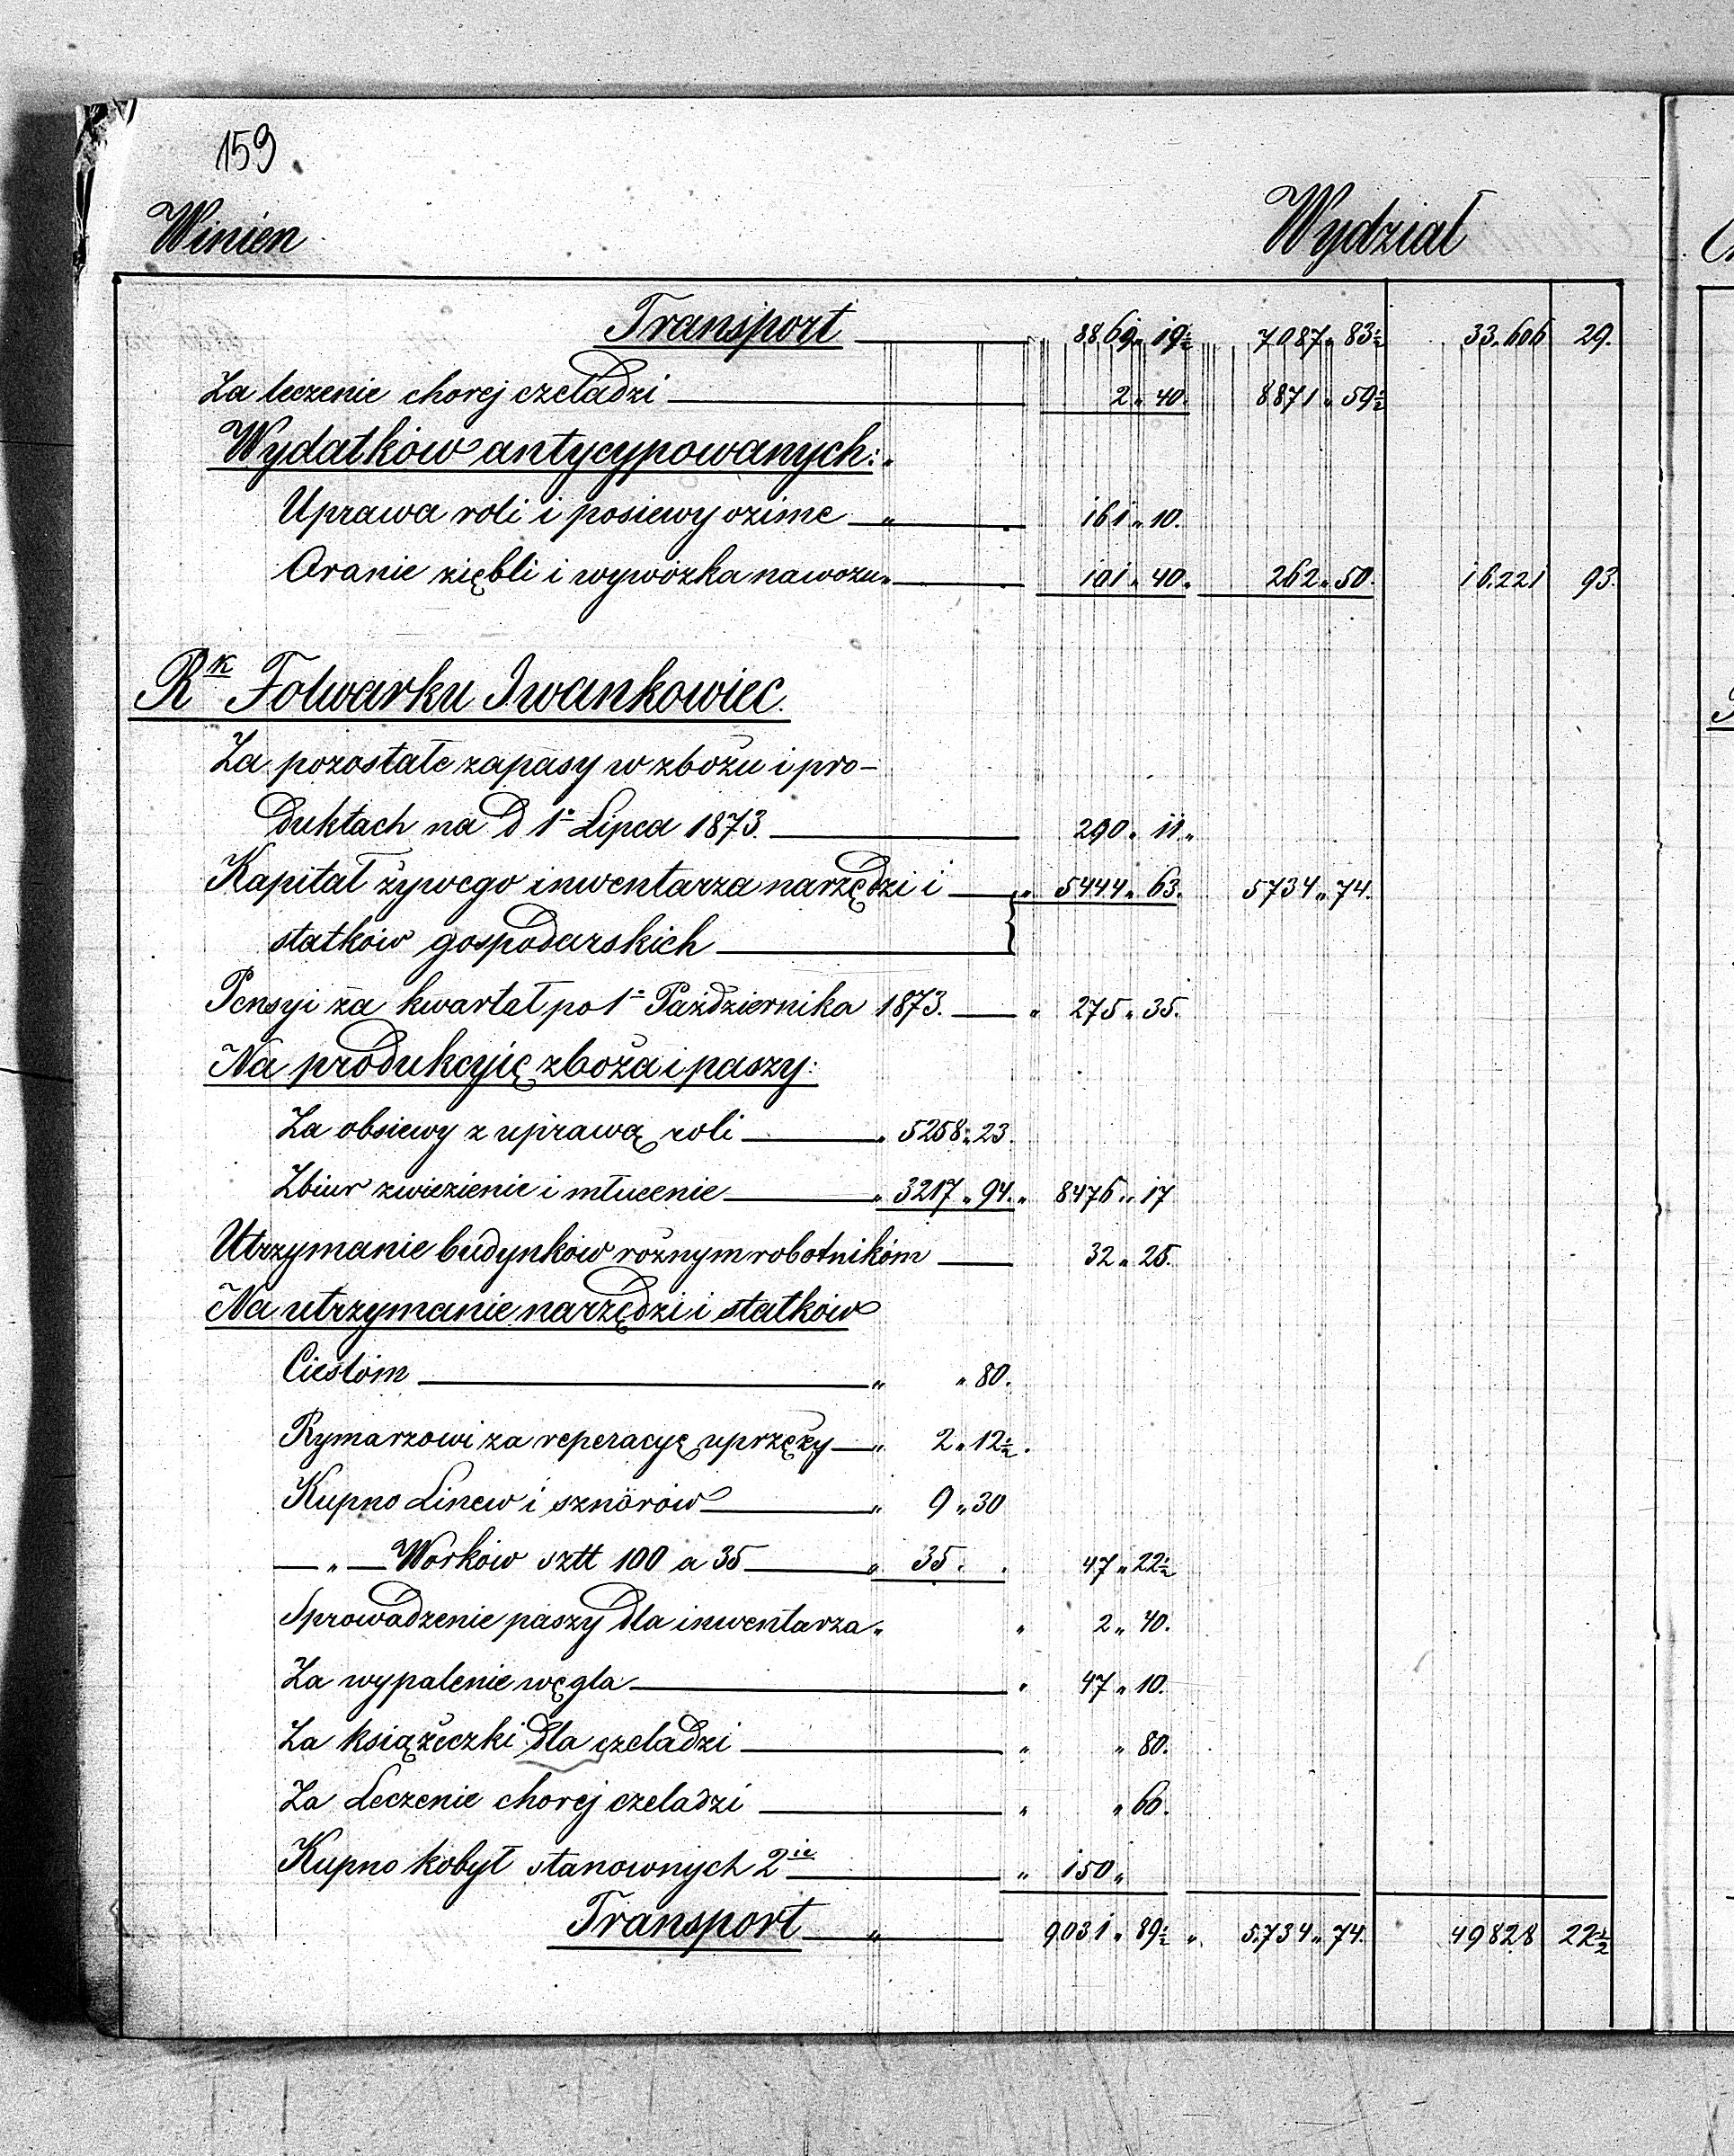 159.
Winien Wydział
Transport 8869 „ 19½ 7087 „ 83½ 33.606 29.
Za leczenie chorej czeladzi 2 „ 40. 8871 „ 59½
Wydatków antycypowanych:
Uprawa roli i posiewy ozime „ 161 „ 10.
Oranie ziębli i wywózka nawozu „ 101 „ 40 „ 262 „ 50. 16.221 93.
Rk Folwarku Iwankowiec.
Za pozostałe zapasy w zbożu i pro-
duktach na d 1º Lipca 1873. 290 „ 11 „
Kapitał żywego inwentarza narzędzi i „ 5444 „ 63. 5734 „ 74.
statków gospodarskich }
Pensyi za kwartał po 1º Października 1873. „ 275 „ 35.
Na produkcyię zboża i paszy:
Za obsiewy z uprawą roli „ 5258 „ 23.
Zbiur zwiezienie i młucenie „ 3217 „ 94. „ 8476 „ 17
Utrzymanie budynków rożnym robotnikóm 32 „ 25.
Na utrzymanie narzędzi i statków
Cieslóm „ „ 80.
Rymarzowi za reperacyę uprzęży „ 2 „ 12½.
Kupno Linew i sznórów „ 9 „ 30
— „ — Worków sztt 100 a 35 „ 35 . . 47 „ 22½
Sprowadzenie paszy dla inwentarza „ „ 2 „ 40.
Za wypalenie węgla „ 47 „ 10.
Za książeczki dla czeladzi „ „ 80.
Za Leczenie chorej czeladzi „ „ 60.
Kupno kobył stanownych 2ie „ 150 „
Transport „ 9031 „ 89½ „ 5.734 „ 74. 49828 22½